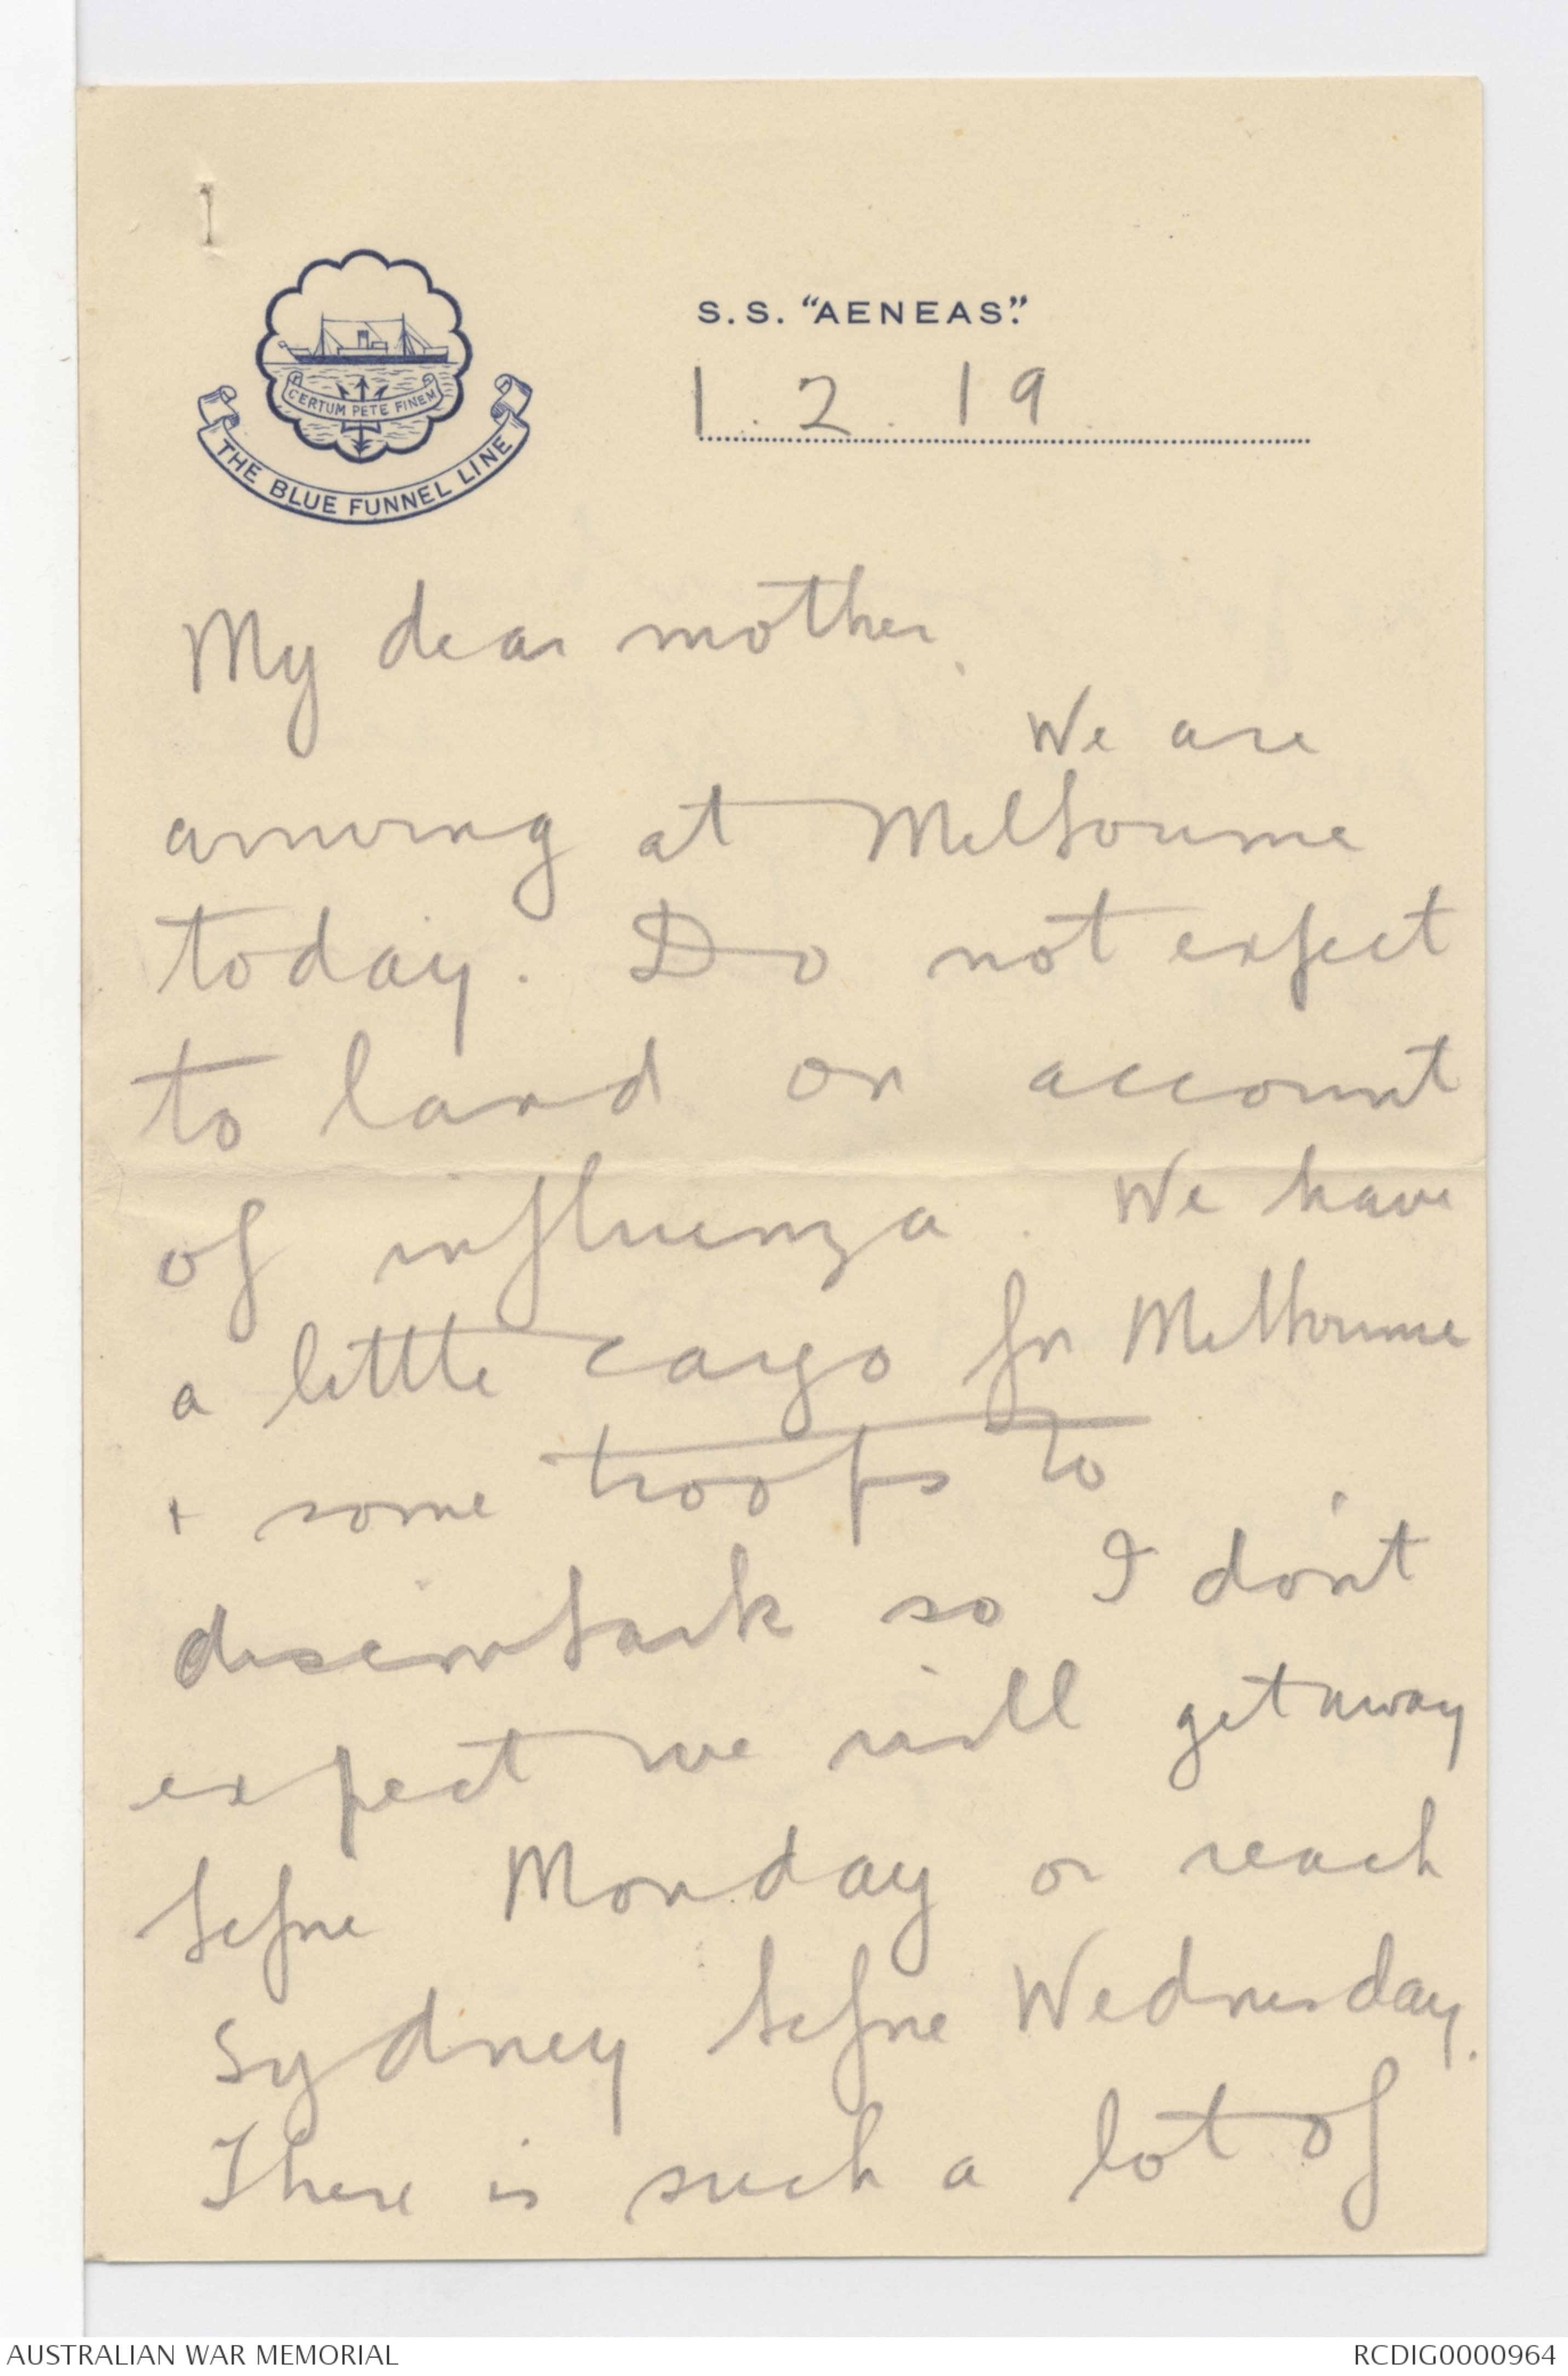 S.S. "AENEAS."
1.2.19
CERTUM PETE FINEM
THE BLUE FUNNEL LINE
My dear mother,
We are
arriving at Melbourne
today. Do not expect
to land on account
of influenza. We have
a little cargo for Melbourne
+ some troops to
disembark so I don't
expect we will get away
before Monday or reach
Sydney before Wednesday.
There is such a lot of
AUSTRALIAN WAR MEMORIAL
RCDIG0000964